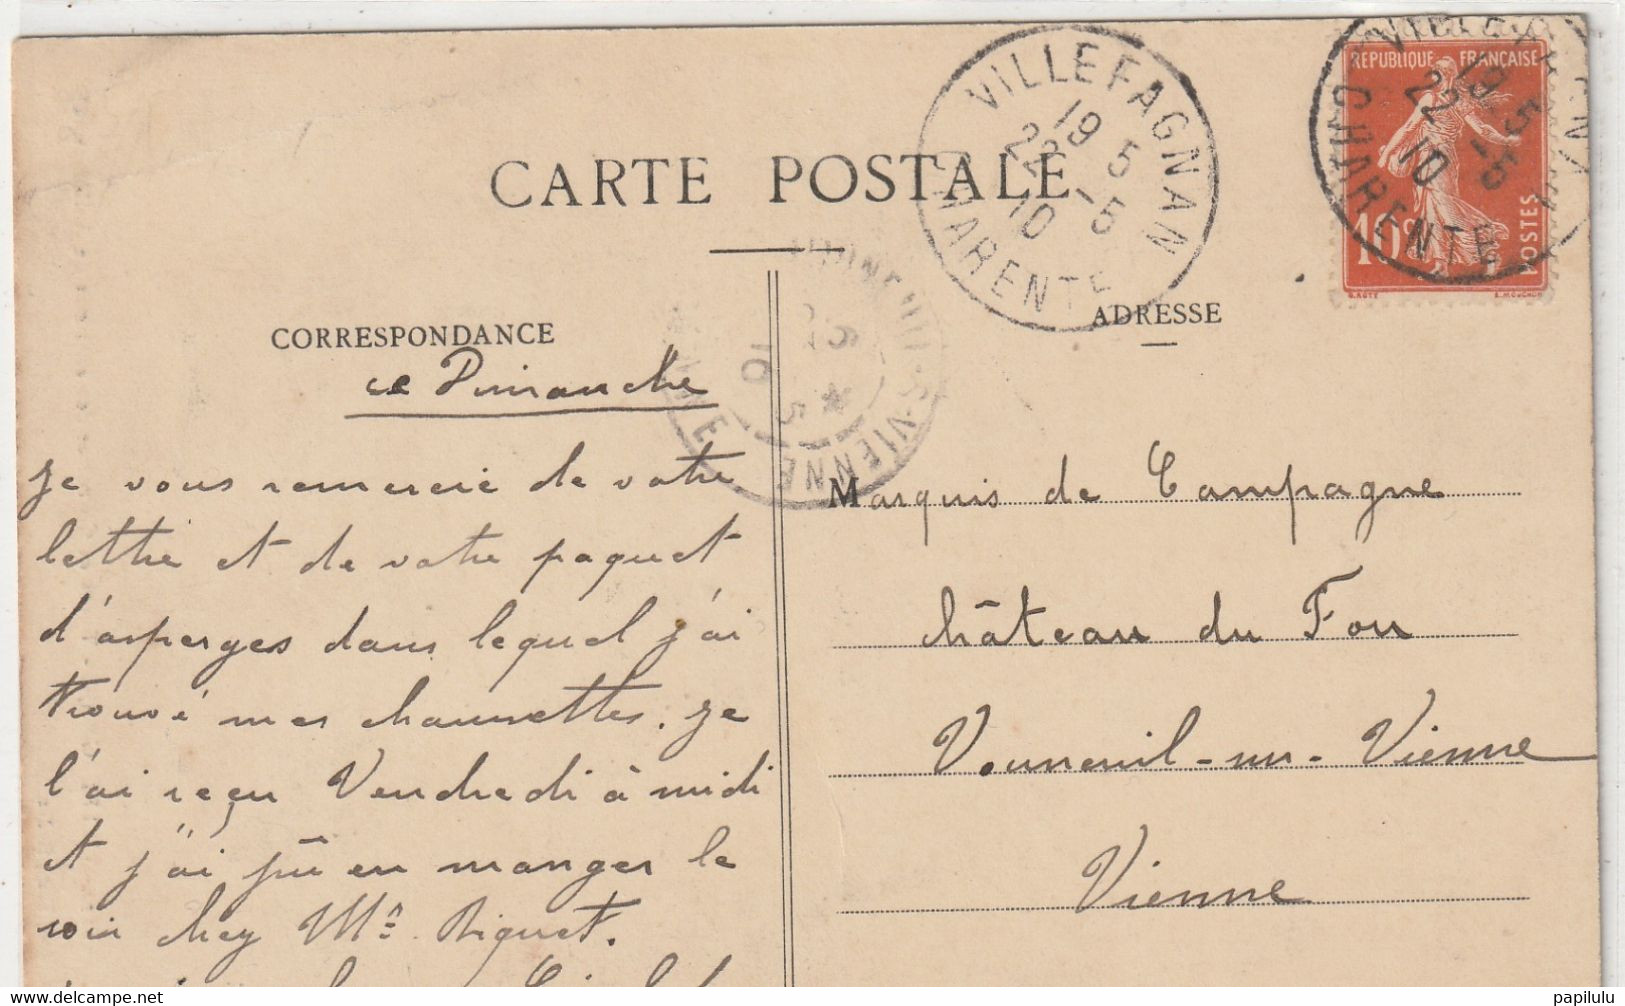 CARTE POSTALE
VILLEFAGNAN
19 5
22 -5
10
CHARENTE
RÉPUBLIQUE FRANÇAISE
10c
POSTES
VILLEFAGNAN
19 5
22 -5
10
CHARENTE
CORRESPONDANCE
ADRESSE
S-VIENNE
ce Dimanche
Je vous remercie de votre
lettre et de votre paquet
d'asperges dans lequel j'ai
trouvé mes chaussettes. Je
l'ai reçu Vendredi à midi
et j'ai pû en manger le
soir chez Mr Riquet.
Marquis de Campagne
château du Fou
Vouneuil-sur-Vienne
Vienne
papilulu